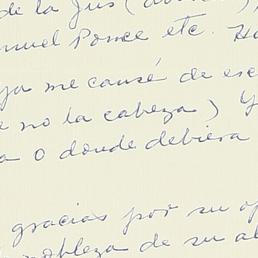 de la Jus (
nuel Ponce etc. Ha
ya me causé de esc
e no la cabeza) Y
a o donde debiera
gracias por su op
nobleza de su al